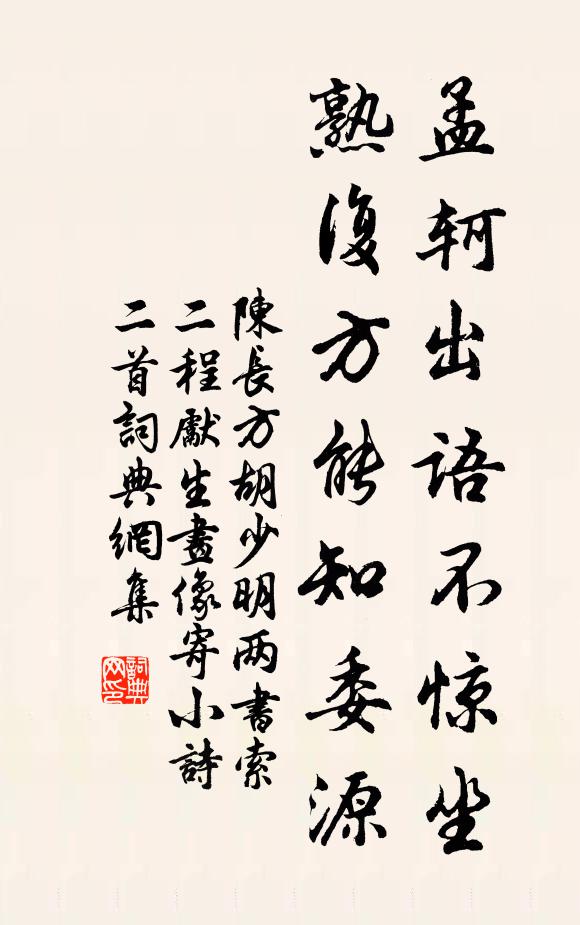 孟軻出語不惊坐
熟復方能知委源
陳長方胡少明两書索
二程獻生畫像寄小詩
二首詞典網集
詞典网印